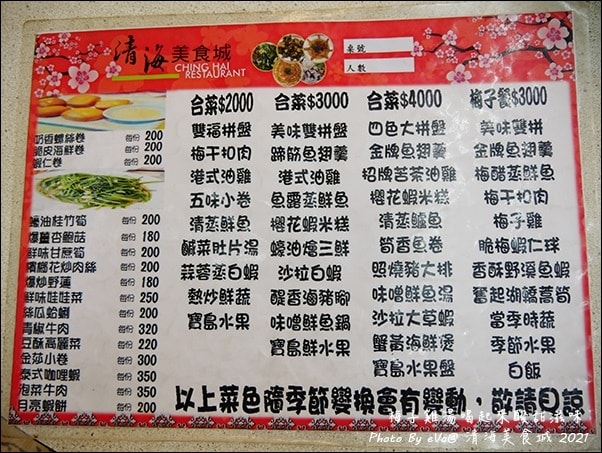 清海美食城
CHING HAI
RESTAURANT
桌號
人數
奶香螺絲卷 每份 200
脆皮海鮮卷 每份 200
蝦仁卷 每份 200
蠔油桂竹筍 每份 200
爆薑杏鮑菇 每份 180
鮮味甘蔗筍 每份 200
檳榔花炒肉絲 每份 200
爆炒野蓮 每份 180
鮮味娃娃菜 每份 250
絲瓜蛤蜊 每份 200
青椒牛肉 每份 320
豆酥高麗菜 每份 220
金莎小卷 每份 350
泰式咖哩蝦 每份 350
泡菜牛肉 每份 350
月亮蝦餅 每份 200
合菜$2000
雙福拼盤
梅干扣肉
港式油雞
五味小卷
清蒸鮮魚
鹹菜肚片湯
蒜蓉蒸白蝦
熱炒鮮蔬
寶島水果
合菜$3000
美味雙拼盤
蹄筋魚翅羹
港式油雞
魚露蒸鮮魚
櫻花蝦米糕
蠔油燴三鮮
沙拉白蝦
醋香滷豬腳
味噌鮮魚鍋
寶島鮮水果
合菜$4000
四色大拼盤
金牌魚翅羹
招牌苦茶油雞
櫻花蝦米糕
清蒸鱸魚
筍香魚卷
照燒豬大排
味噌鮮魚湯
沙拉大草蝦
蟹黃海鮮煲
寶島水果盤
梅子餐$3000
美味雙拼
金牌魚翅羹
梅醋蒸鮮魚
梅干扣肉
梅子雞
脆梅蝦仁球
香酥野溪魚蝦
奮起湖轎篙筍
當季時蔬
季節水果
白飯
以上菜色隨季節變換會有變動，敬請見諒
Photo By eVa@ 清海美食城 2021